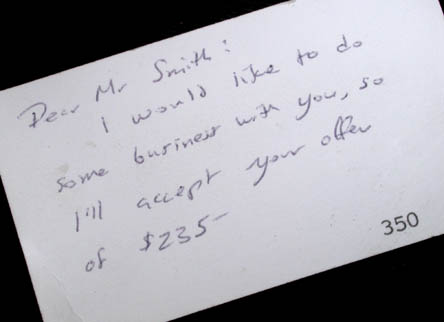 Dear Mr Smith:
I would like to do
some business with you, so
I'll accept your offer
of $235-
350